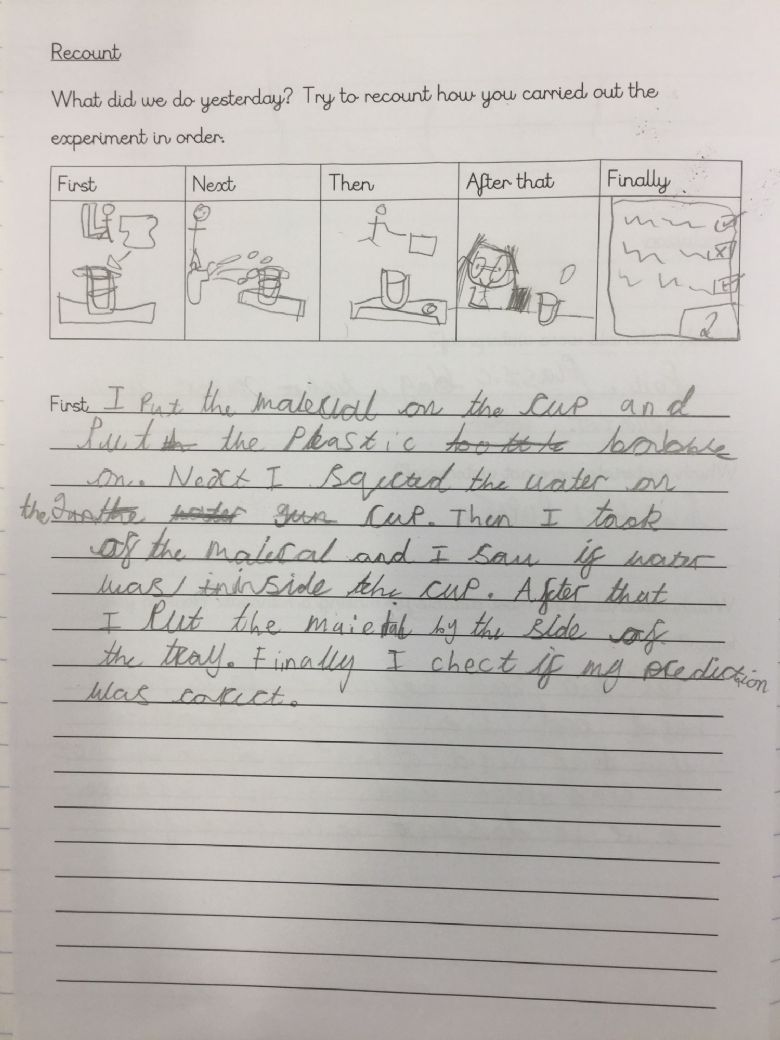 Recount
What did we do yesterday? Try to recount how you carried out the
experiment in order.
First Next Then After that Finally
2
First, I Put the material on the cup and
Put the Plastic
on. Next I sqicted the water on
the cup. Then I took
of the materal and I saw if water
was inside the cup. After that
I Put the maietial by the side of
the tray. Finally I chect if my prediction
was corect.